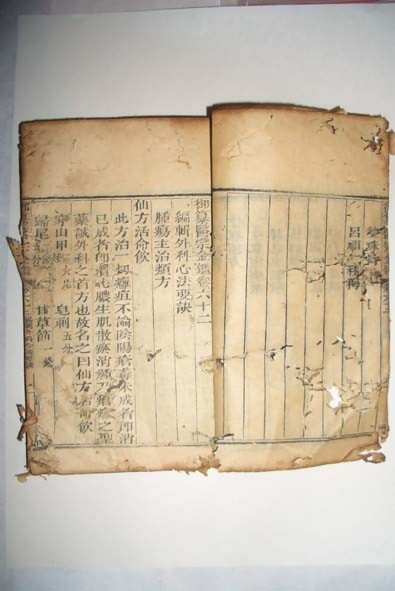 珍珠
呂祖一枝梅
御纂醫宗金鑑卷六十二
編輯外科心法要訣
腫瘍主治類方
仙方活命飲
此方治一切癰疽不論陰陽瘡毒未成者即消
已成者即潰化膿生肌散瘀消腫乃瘡癰之聖
藥誠外科之首方也故名之曰仙方活命飲
穿山甲 大片 皂刺五分
歸尾 分 甘草節一錢